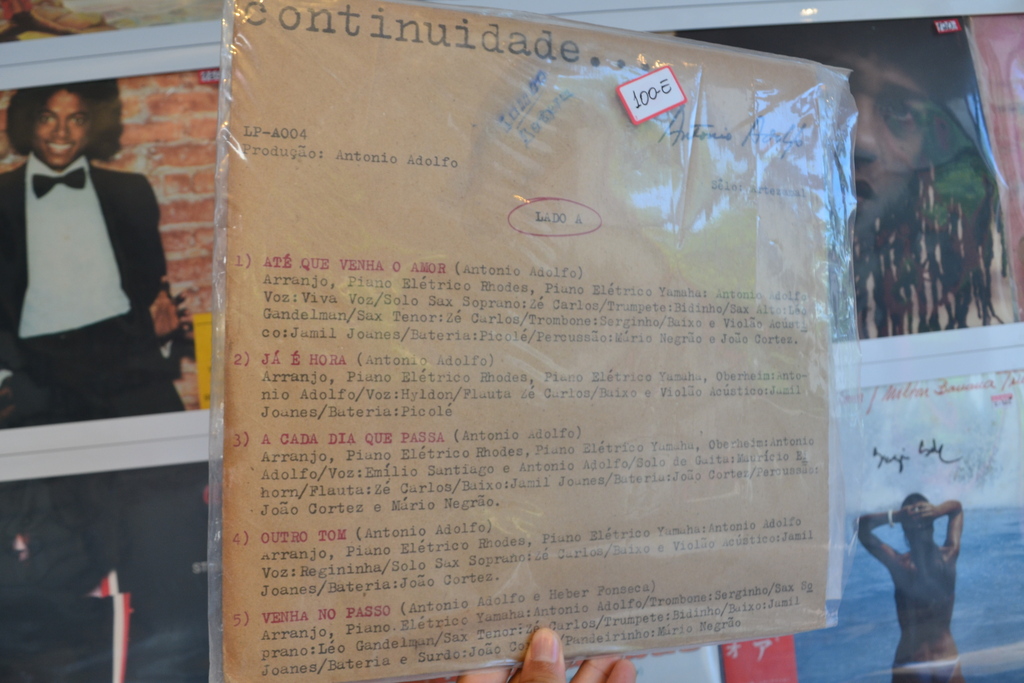 continuidade...
100-E
Antonio Adolfo
LP-A004
Produção: Antonio Adolfo
LADO A
1) ATÉ QUE VENHA O AMOR (Antonio Adolfo)
Arranjo, Piano Elétrico Rhodes, Piano Elétrico Yamaha: Antonio Adolfo
Voz:Viva Voz/Solo Sax Soprano:Zé Carlos/Trumpete:Bidinho/Sax Alto:Léo
Gandelman/Sax Tenor:Zé Carlos/Trombone:Serginho/Baixo e Violão Acústi-
co:Jamil Joanes/Bateria:Picolé/Percussão:Mário Negrão e João Cortez.
2) JÁ É HORA (Antonio Adolfo)
Arranjo, Piano Elétrico Rhodes, Piano Elétrico Yamaha, Oberheim:Anto-
nio Adolfo/Voz:Hyldon/Flauta Zé Carlos/Baixo e Violão Acústico:Jamil
Joanes/Bateria:Picolé
3) A CADA DIA QUE PASSA (Antonio Adolfo)
Arranjo, Piano Elétrico Rhodes, Piano Elétrico Yamaha, Oberheim:Antonio
Adolfo/Voz:Emílio Santiago e Antonio Adolfo/Solo de Gaita:Maurício Ei
horn/Flauta:Zé Carlos/Baixo:Jamil Joanes/Bateria:João Cortez/Percussão:
João Cortez e Mário Negrão.
4) OUTRO TOM (Antonio Adolfo)
Arranjo, Piano Elétrico Rhodes, Piano Elétrico Yamaha:Antonio Adolfo
Voz:Regininha/Solo Sax Soprano:Zé Carlos/Baixo e Violão Acústico:Jamil
Joanes/Bateria:João Cortez.
5) VENHA NO PASSO (Antonio Adolfo e Heber Fonseca)
Arranjo, Piano Elétrico Yamaha:Antonio Adolfo/Trombone:Serginho/Sax So
prano:Léo Gandelman/Sax Tenor:Zé Carlos/Trumpete:Bidinho/Baixo:Jamil
Joanes/Bateria e Surdo:João /Pandeirinho:Mário Negrão